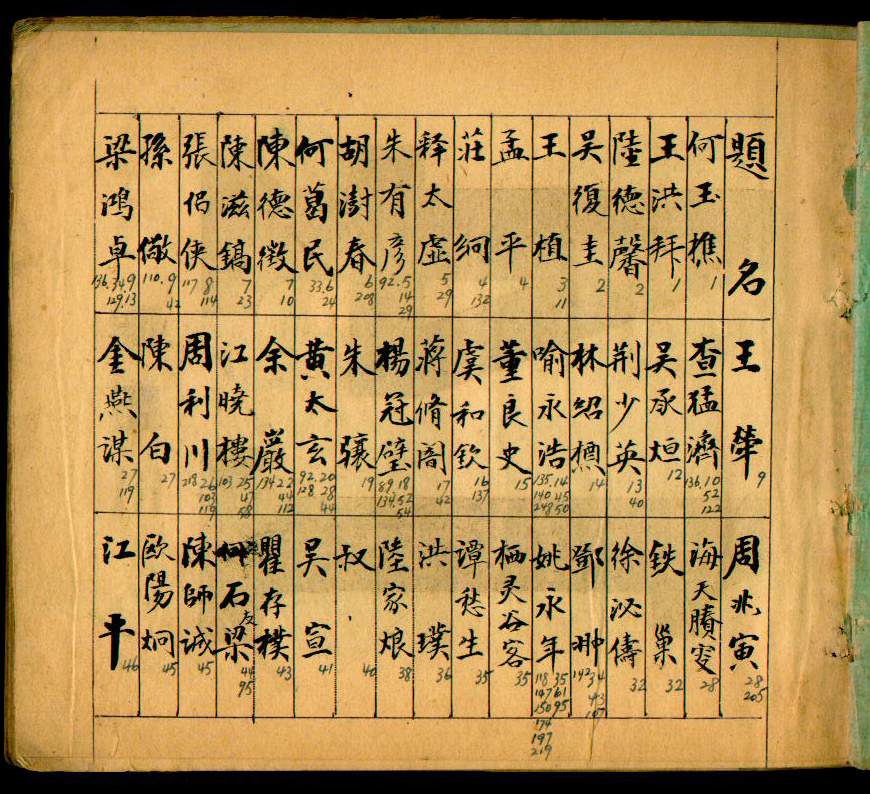 題名
何玉樵 1
王洪拜 1
陸德馨 2
吳復圭 2
王植 3 11
孟平 4
莊絅 4 132
释太虛 5 29
朱有彥 92.5 14 29
胡澍春 6 208
何葛民 33.6 24
陳德徵 7 10
陳滋鎬 7 23
張侣侠 117 8 114
孫儆 110.9 42
梁鴻卓 136.34.9 129.13
王犖 9
查猛濟 136.10 52 122
吴承烜 12
荆少英 13 40
林紹槱 14
喻永浩 135.14 140 45 248 50
董良史 15
虞和欽 16 137
蔣脩閣 17 42
楊冠璧 89.18 134.52 54
朱骧 19
黄太玄 92.20 128 28 44
余巖 134 22 44 112
江曉樓 103 25 47 58
周利川 218 26 103 119
陳白 27
金燕謀 27 119
周兆寅 28 205
海天賸叟 28
鉄巢 32
徐泌儔 32
鄧翀 142 34 43 107
姚永年 118 35 147 61 150 95 174 197 219
栖灵谷客 35
譚愁生 35
洪璞 36
陸家烺 38
叔 40
吴宣 41
瞿存樸 43
何石友梁 44 95
陳師诚 45
欧陽炯 45
江平 46